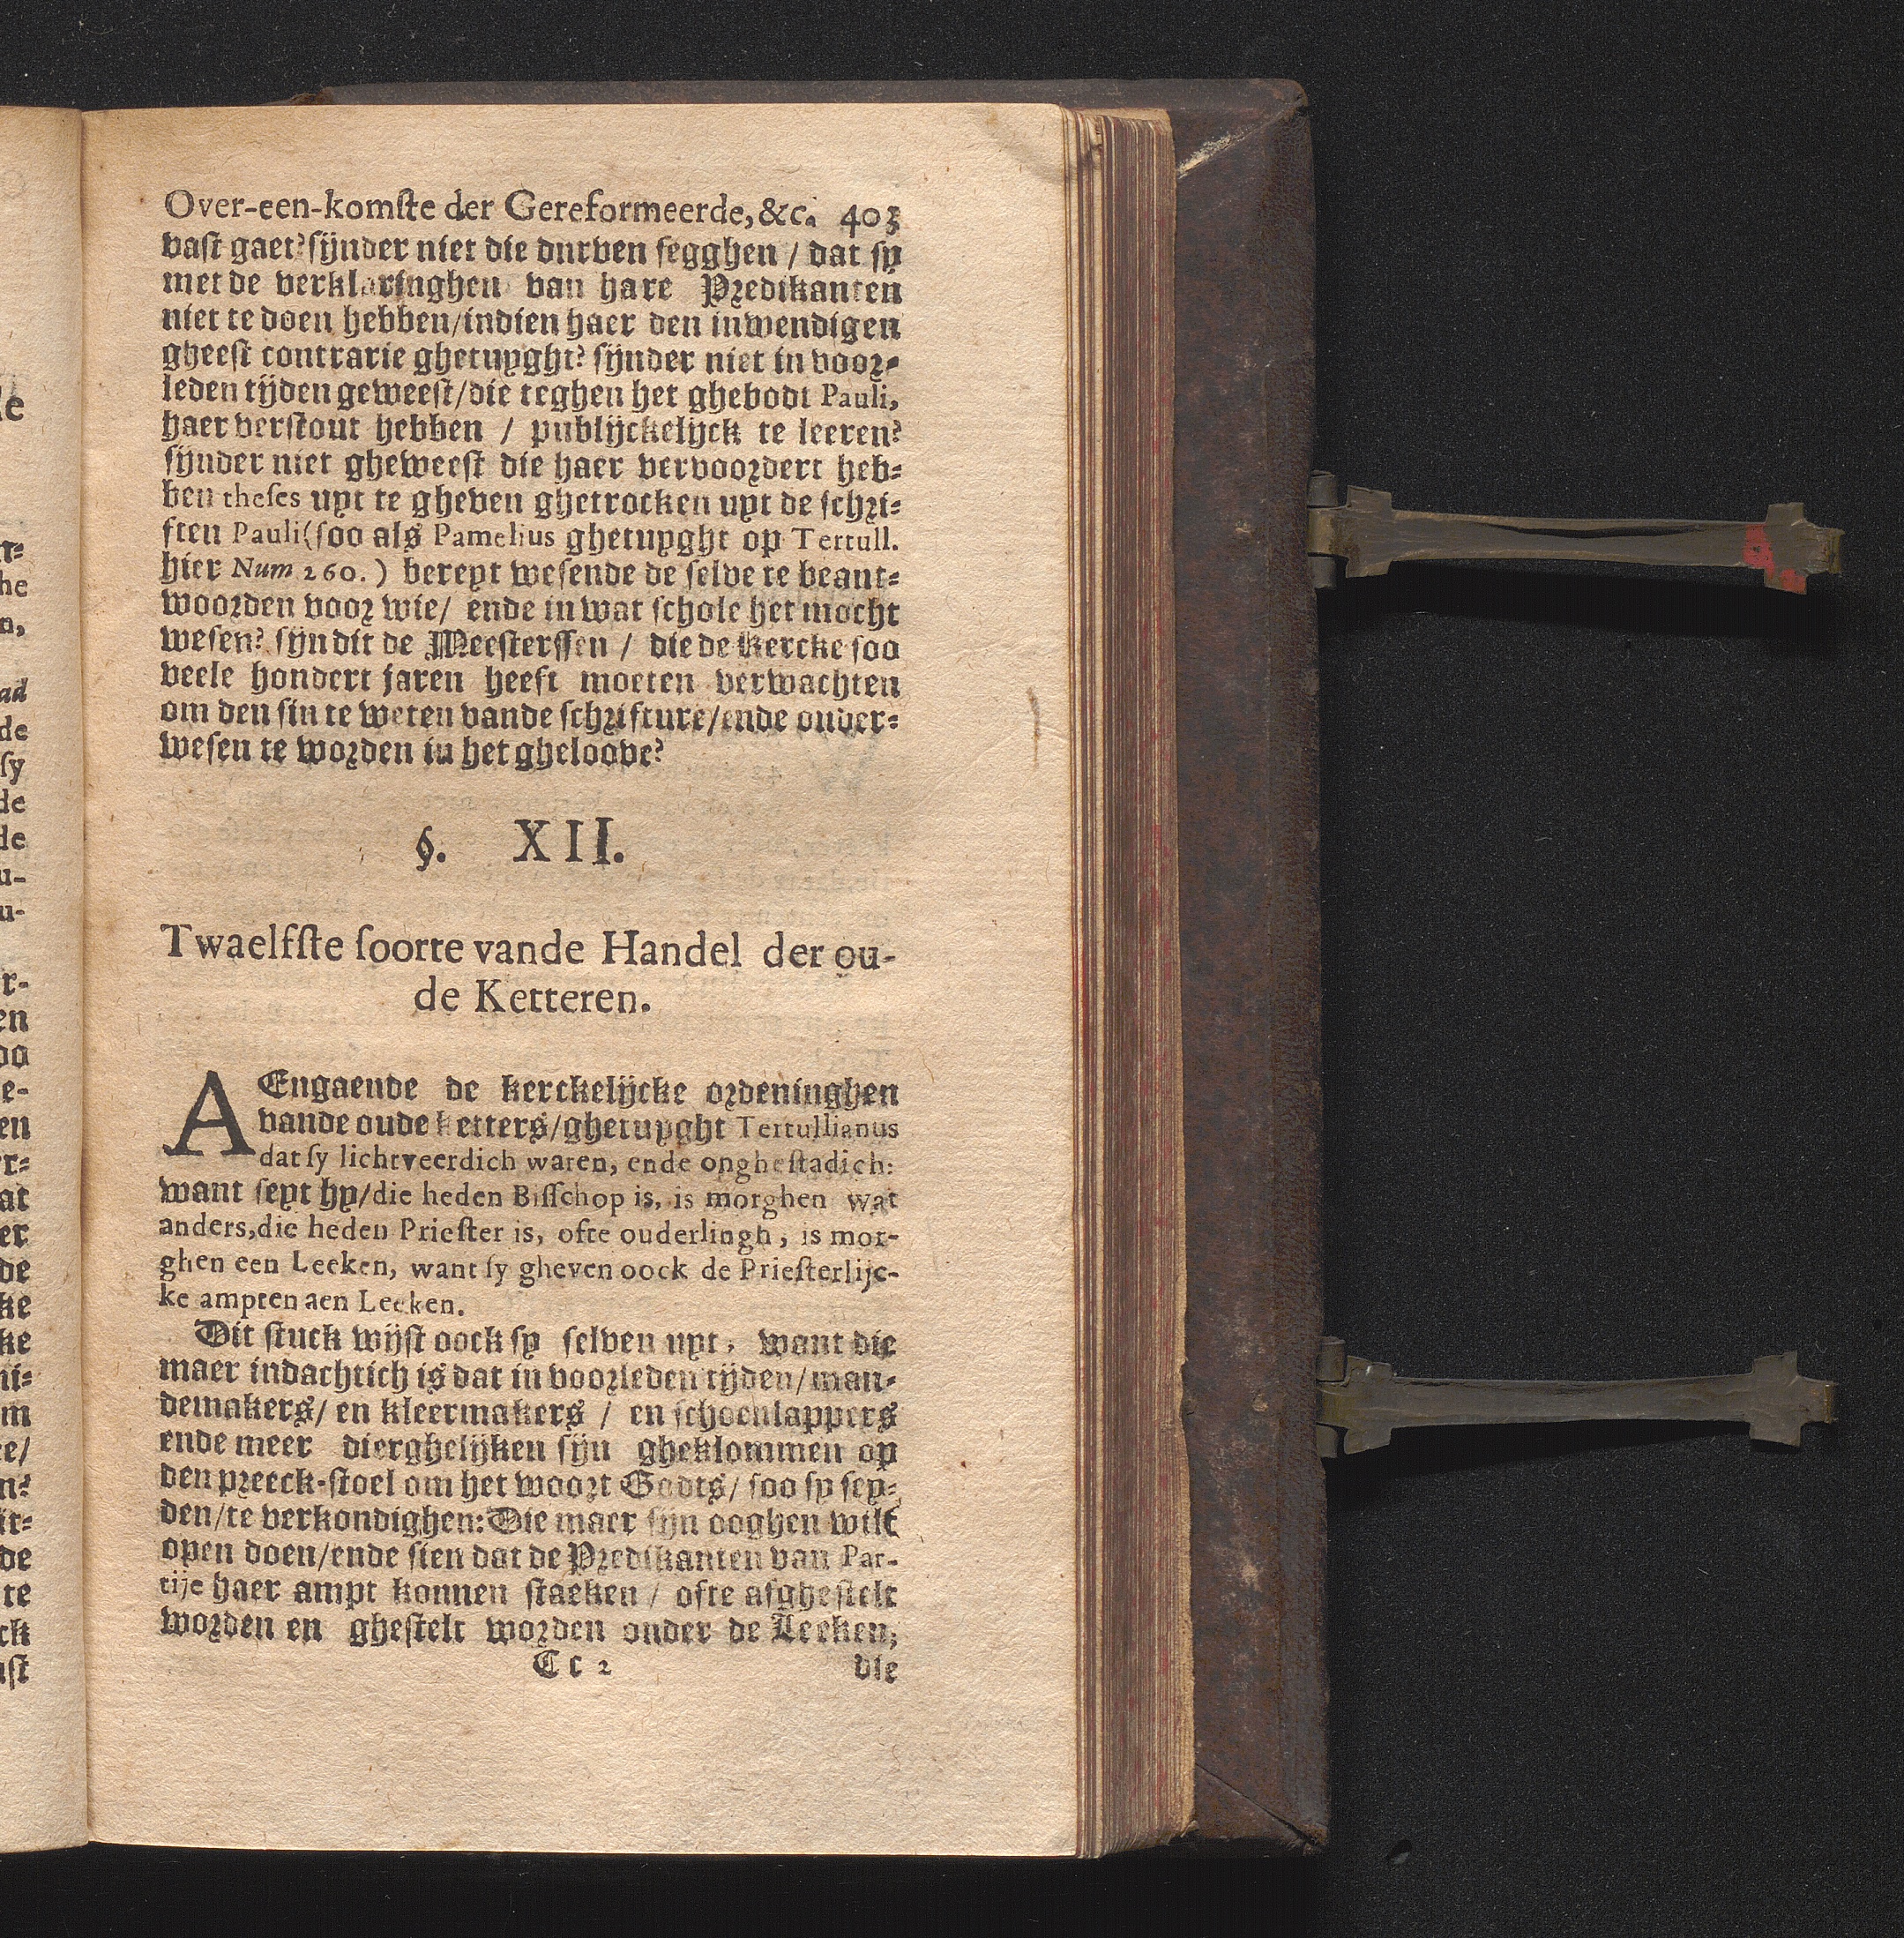 Over-een-komſte der Gereformeerde, &c. 403
vaſt gaet? ſijnder niet die durven ſegghen / dat ſy
met de verklaringhen van hare Predikanten
niet te doen hebben/indien haer den inwendigen
gheeſt contrarie ghetuyght? ſijnder niet in voor-
leden tijden geweeſt/die teghen het ghebodt Pauli,
haer verſtout hebben / publijckelijck te leeren?
ſijnder niet gheweeſt die haer vervoordert heb-
ben theſes uyt te gheven ghetrocken uyt de ſchri-
ften Pauli (ſoo als Pamelius ghetuyght op Tertull.
hier Num 260.) bereyt weſende de ſelve te beant-
woorden voor wie/ ende in wat ſchole het mocht
weſen? ſijn dit de Meeſterſſen / die de Kercke ſoo
veele hondert jaren heeft moeten verwachten
om den ſin te weten vande ſchrifture/ende onder-
weſen te worden in het gheloove?
§. XII.
Twaelfſte ſoorte vande Handel der ou-
de Ketteren.
AEngaende de kerckelijcke ordeninghen
vande oude ketters/ghetuyght Tertullianus
dat ſy lichtveerdich waren, ende onghe­ſtadich:
want ſeyt hy/die heden Biſſchop is, is morghen wat
anders, die heden Prieſter is, ofte ouderlingh, is mor-
ghen een Leeken, want ſy gheven oock de Prieſterlijc-
ke ampten aen Leeken.
Dit ſtuck wijſt oock ſy ſelven uyt, want die
maer indachtich is dat in voorleden tijden/man-
demakers/ en kleermakers / en ſchoenlappers
ende meer dierghelijken ſijn gheklommen op
den preeck-ſtoel om het woort Godts/ ſoo ſy ſey-
den/te verkondighen: Die maer ſijn ooghen wilt
open doen/ende ſien dat de Predikanten van Par-
tije haer ampt konnen ſtaeken / ofte afgheſtelt
worden en gheſtelt worden onder de Leeken,
Cc 2 die